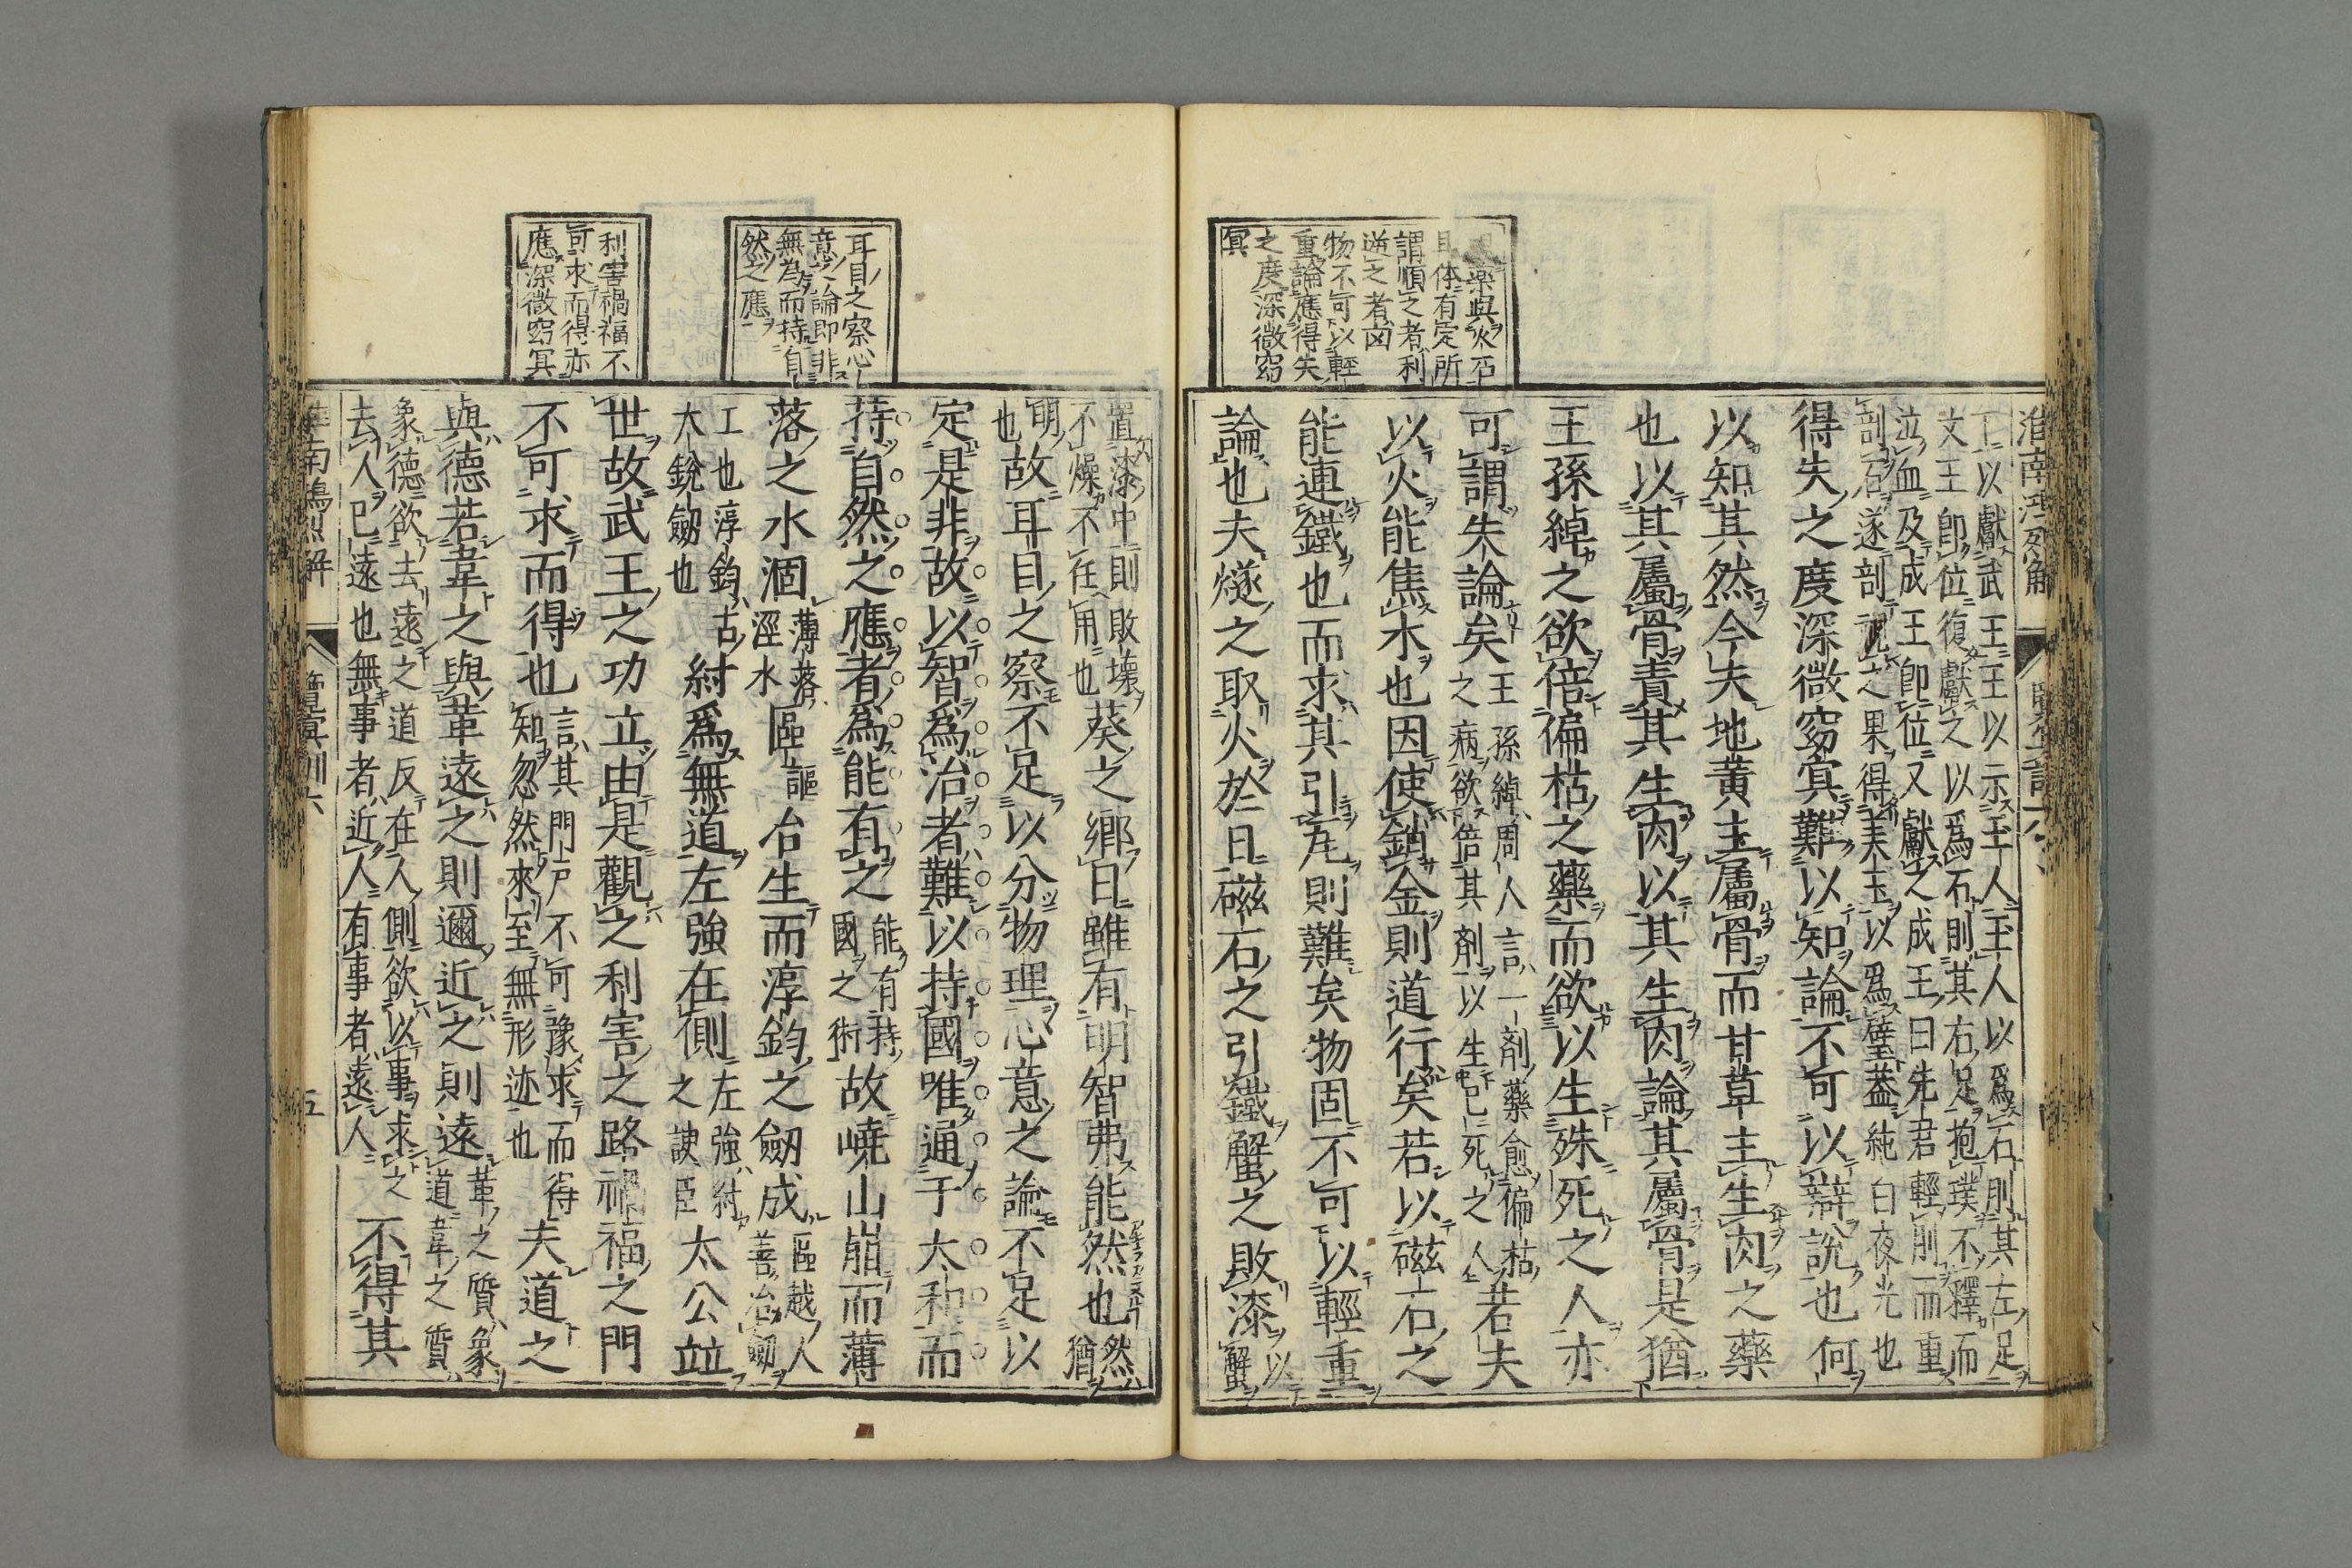 淮南鴻烈解
藥與火石
体有定所
謂順之者利
逆之者凶
物不可以輕
重論應得失
之度深微窈
冥
王以獻武王王以示玉人玉人以爲石刖其左足
文王卽位復獻之以爲石刖其右足抱璞不釋而
泣血及成王卽位又獻之成王曰先君輕刖而重
剖石遂剖視之果得美玉以爲璧蓋純白夜光也
得失之度深微窈冥難以知論不可以辯說也何
以知其然今夫地黃主屬骨而甘草主生肉之藥
也以其屬骨責其生肉以其生肉論其屬骨是猶
王孫綽之欲倍偏枯之藥而欲以生殊死之人亦
可謂失論矣王孫綽周人言一劑藥愈偏枯之病欲倍其劑以生已死之人若夫
以火能焦木也因使銷金則道行矣若以磁石之
能連鐵也而求其引瓦則難矣物固不可以輕重
論也夫燧之取火於日磁石之引鐵蟹之敗漆以蟹
耳目之察心
意之論卽非
無為而持自
然之應
利害禍福不
可求而得亦
應深微窈冥
置漆中則敗壞不燥不任用也葵之鄉日雖有明智弗能然也然猶
明也故耳目之察不足以分物理心意之論不足以
定是非故以智爲治者難以持國唯通于太和而
持自然之應者爲能有之能有持國之術故嶢山崩而薄
落之水涸薄落涇水區謳冶生而淳鈞之劒成區越人善冶劒
工也淳鈞古大銳劒也紂爲無道左強在側左強紂之諛臣太公竝
世故武王之功立由是觀之利害之路禍福之門
不可求而得也言其門戶不可豫求而得知忽然來至無形迹也夫道之
與德若韋之與革遠之則邇近之則遠革之質象道韋之質
象德欲去遠之道反在人側欲以事求之去人已遠也無事者近人有事者遠人不得其
淮南鴻烈解 覽冥訓六 五